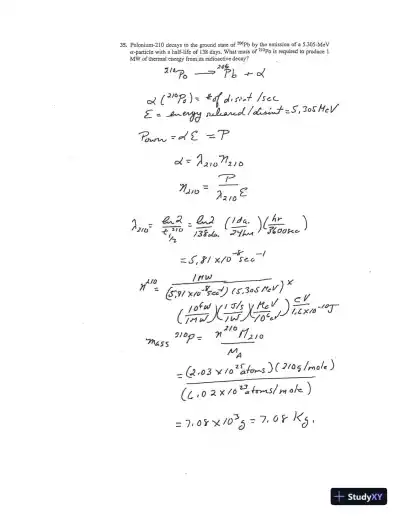 35. Polonium-210 decays to the ground state of ²⁰⁶Pb by the emission of a 5.305-MeV
α-particle with a half-life of 138 days. What mass of ²¹⁰Po is required to produce 1
MW of thermal energy from its radioactive decay?
²¹⁰Po → ²⁰⁶Pb + α
α(²¹⁰Po) = # of disint/sec
E = energy released/disint = 5,305 MeV
Power = αE = P
α = λ₂₁₀ n₂₁₀
n₂₁₀ = P / λ₂₁₀ E
λ₂₁₀ = ln2 / t₁/₂²¹⁰ = ln2 / 138da. (1da. / 24hrs) (hr / 3600sec)
= 5,81 × 10⁻⁸ sec⁻¹
n²¹⁰ = 1MW / (5,81 × 10⁻⁸ sec⁻¹)(5,305 MeV) ×
(10⁶W / 1MW) (1J/s / 1W) (MeV / 10⁶eV) eV / 1,6×10⁻¹⁹J
mass ²¹⁰P = n²¹⁰ M₂₁₀ / M_A
= (2.03 × 10²⁵ atoms)(210g/mole)
(6,02 × 10²³ atoms/mole)
= 7.08 × 10³ g = 7,08 Kg.
+ StudyXY